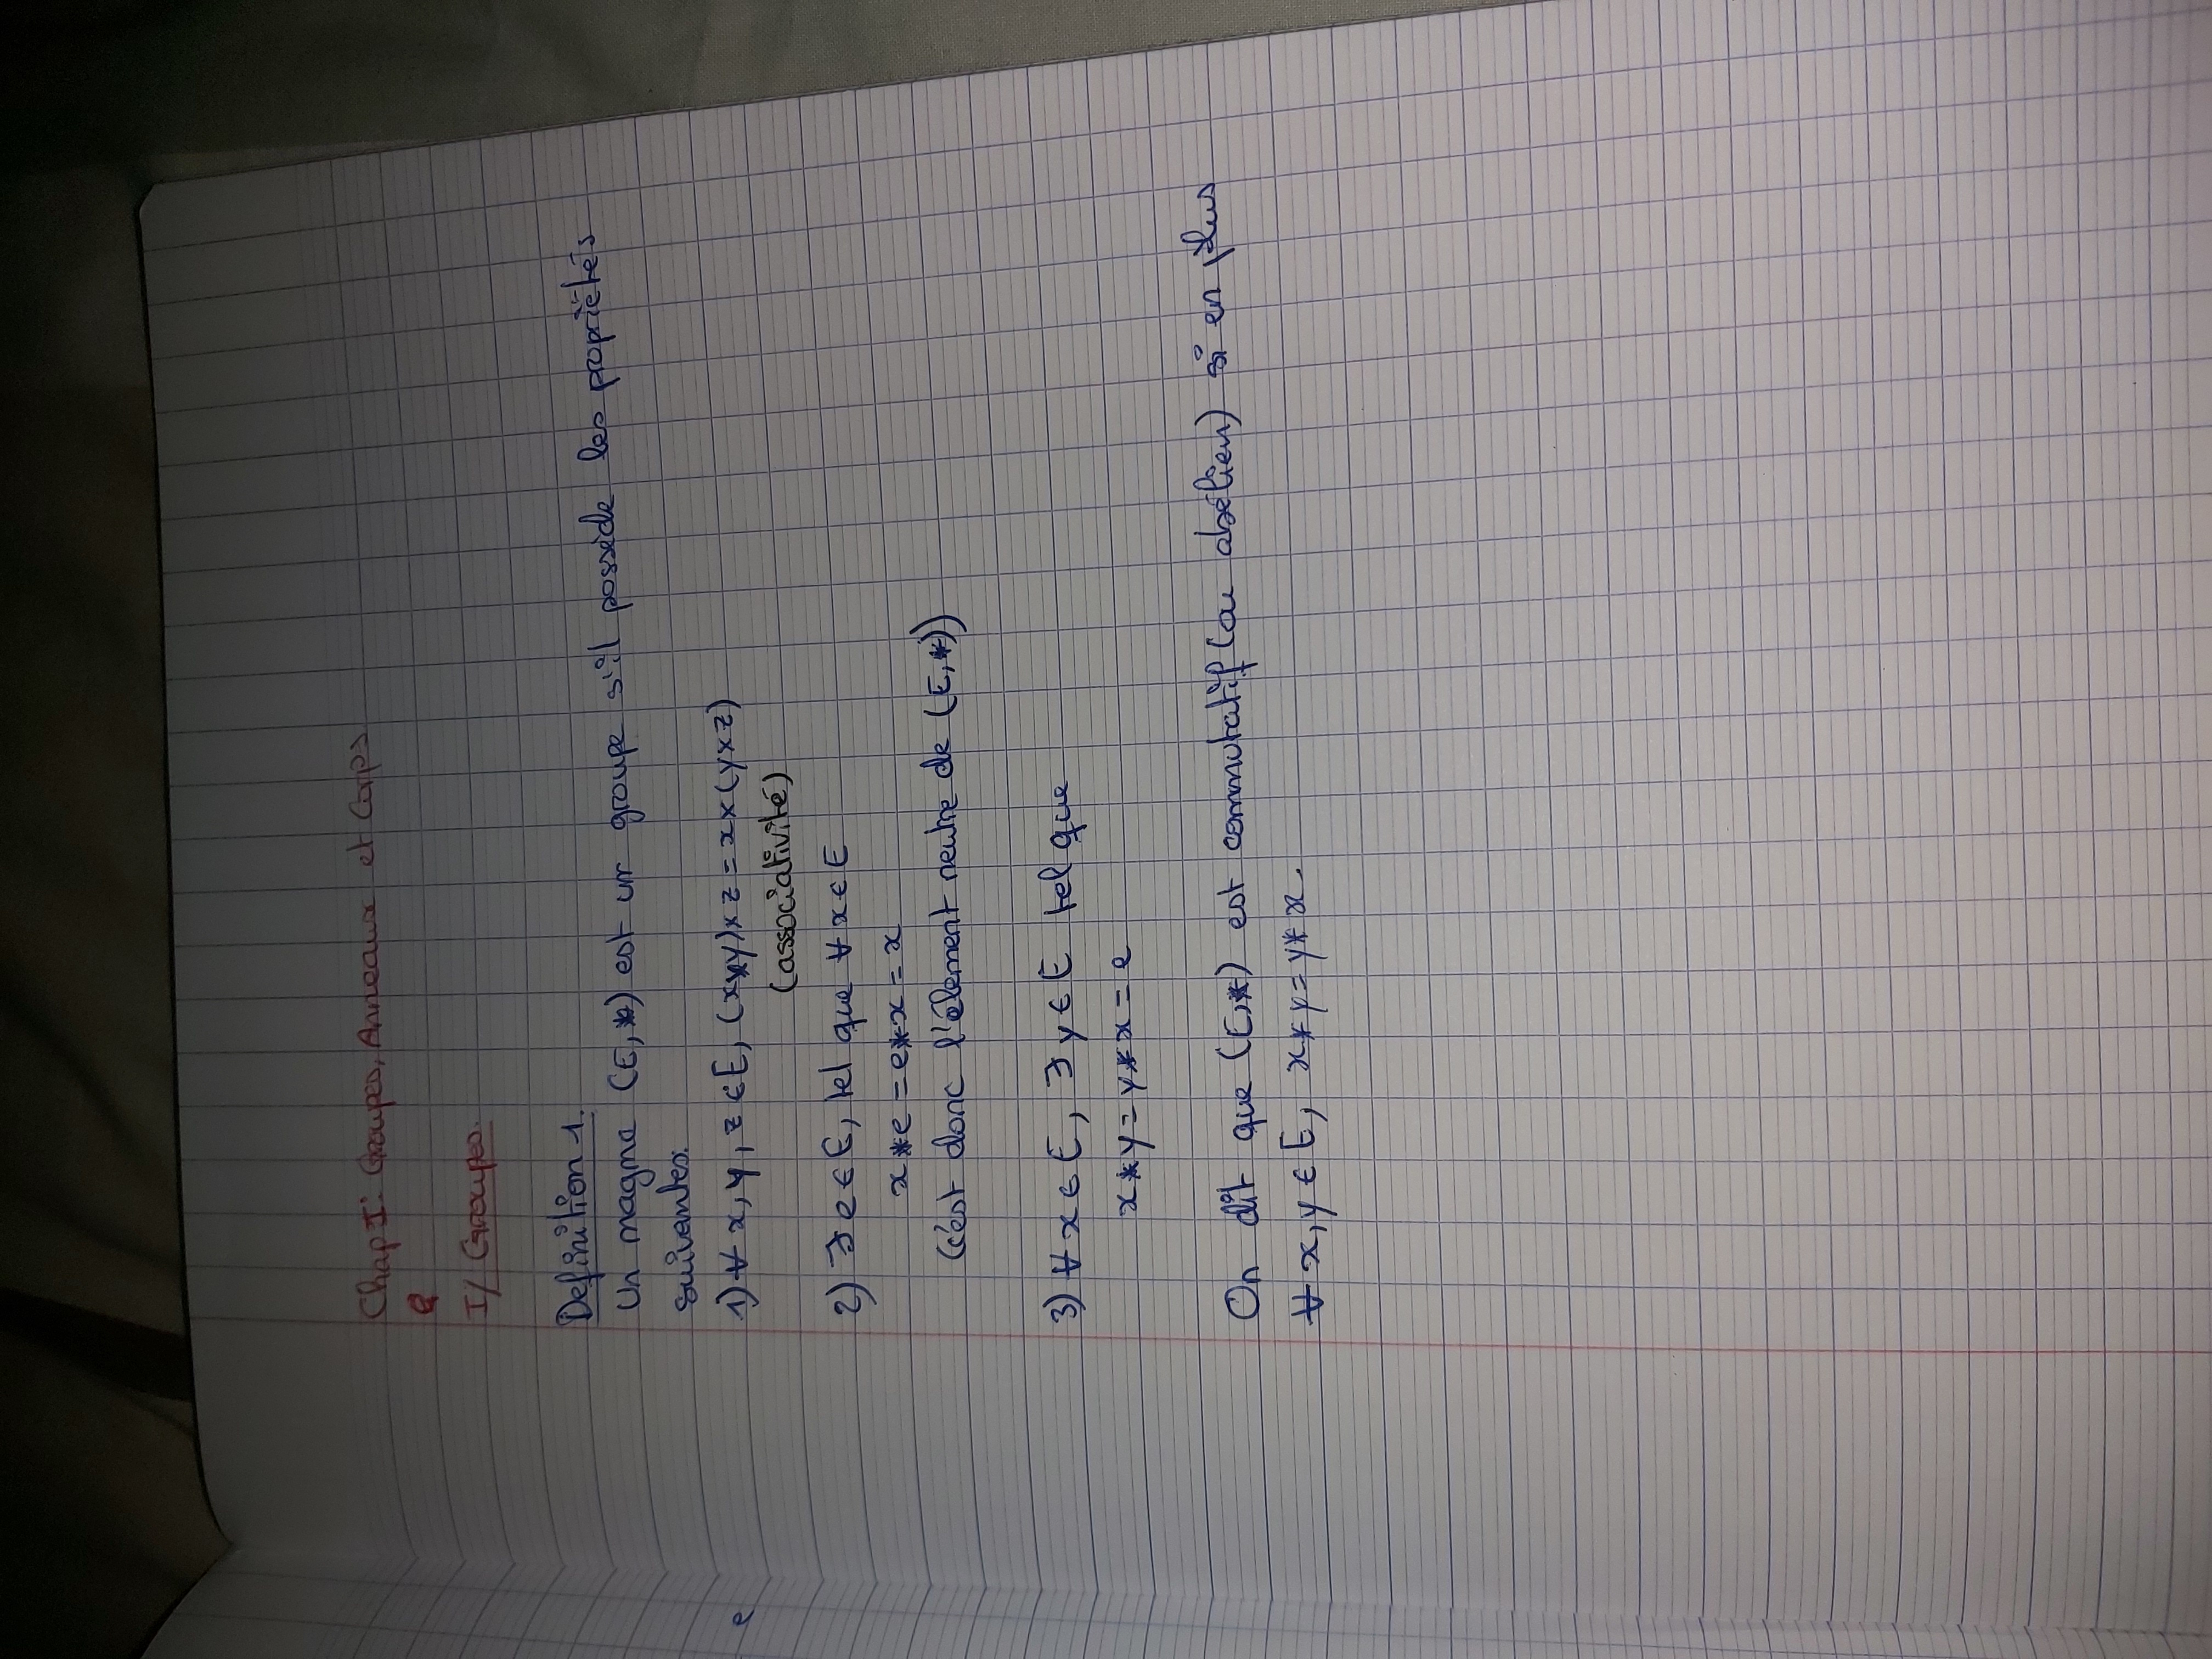 Chap I: Groupes, Anneaux et Corps
I/ Groupes.
Definition 1.
Un magma (E, *) est un groupe s'il possède les propriétés
suivantes:
e
1) ∀ x, y, z ∈ E, (x*y)×z = x×(y×z)
(associativité)
2) ∃ e ∈ E, tel que ∀ x ∈ E
x*e = e*x = x
(c'est donc l'élement neutre de (E, *))
3) ∀ x ∈ E, ∃ y ∈ E tel que
x*y = y*x = e
On dit que (E,*) est commutatif (ou abélien) si en plus
∀ x, y ∈ E, x*y = y*x.